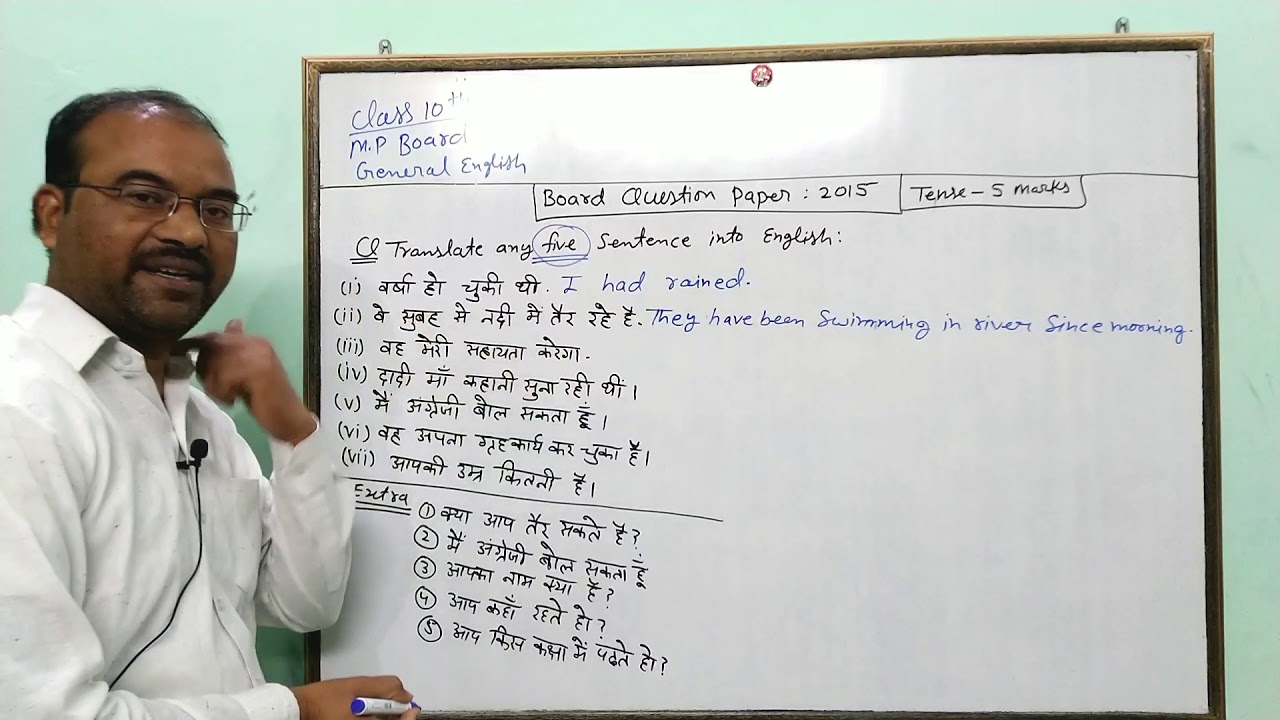 Class 10th
M.P Board
General English
Board Question Paper : 2015 Tense - 5 marks
Q Translate any five Sentence into English:
(i) वर्षा हो चुकी थी. I had rained.
(ii) वे सुबह से नदी में तैर रहे है. They have been Swimming in river Since morning.
(iii) वह मेरी सहायता करेगा.
(iv) दादी माँ कहानी सुना रही थी।
(v) मैं अंग्रेजी बोल सकता हूँ।
(vi) वह अपना गृहकार्य कर चुका है।
(vii) आपकी उम्र कितनी है।
Extra
① क्या आप तैर सकते है?
② मैं अंग्रेजी बोल सकता हूँ
③ आपका नाम क्या है?
④ आप कहाँ रहते हो?
⑤ आप किस कक्षा में पढ़ते हो?